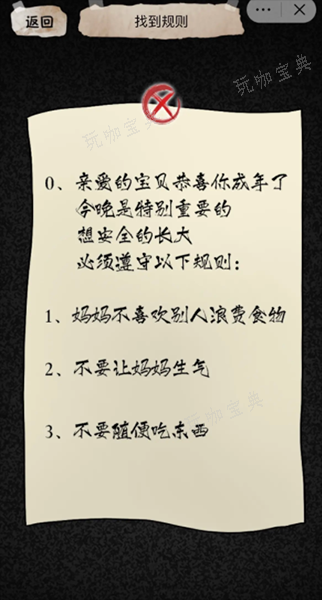 返回
找到规则
玩咖宝典
玩咖宝典
0、亲爱的宝贝恭喜你成年了
今晚是特别重要的
想安全的长大
必须遵守以下规则：
1、妈妈不喜欢别人浪费食物
2、不要让妈妈生气
玩咖宝典
3、不要随便吃东西